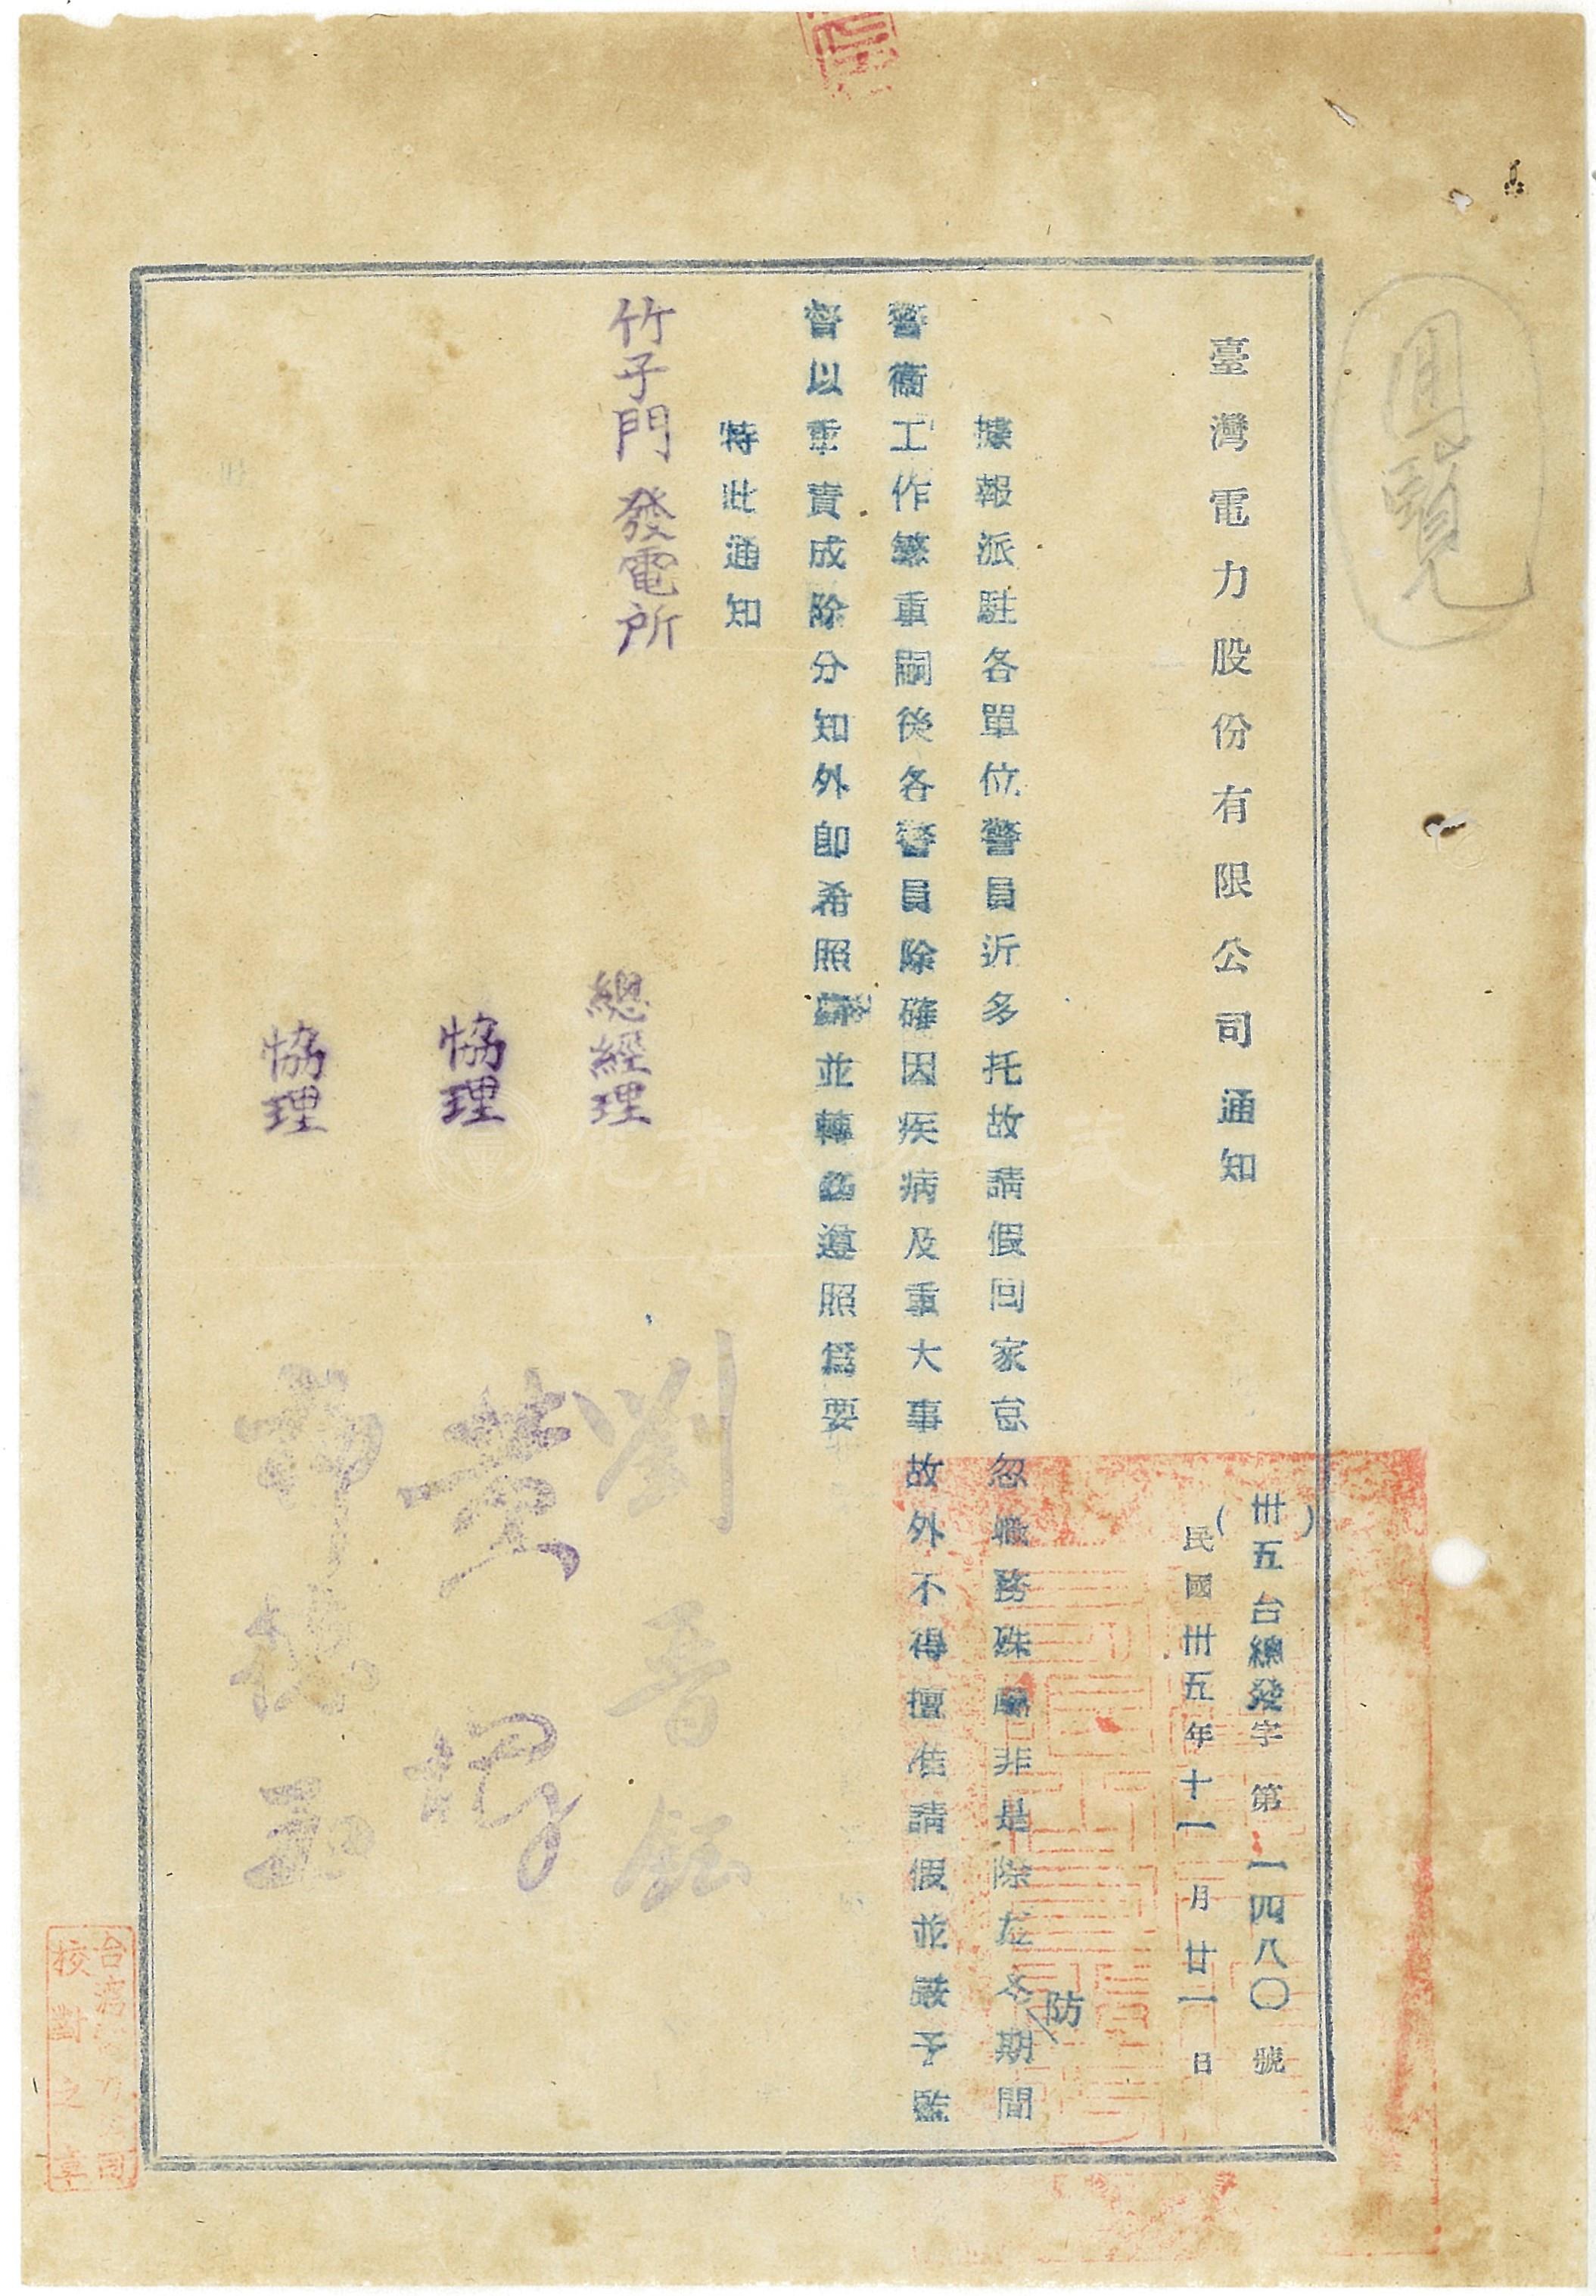 回覽
臺灣電力股份有限公司通知
(卅五台總發字第一四八〇號)
民國卅五年十一月廿一日
據報派駐各單位警員近多托故請假回家怠忽職務殊屬非是除在冬防期間
警衞工作繁重嗣後各警員除確因疾病及重大事故外不得擅准請假並嚴予監
督以重責成除分知外卽希照辦並轉飭遵照爲要
特此通知
竹子門發電所
總經理 劉晋鈺
協理 黃煇
協理
台灣電力公司
校對之章